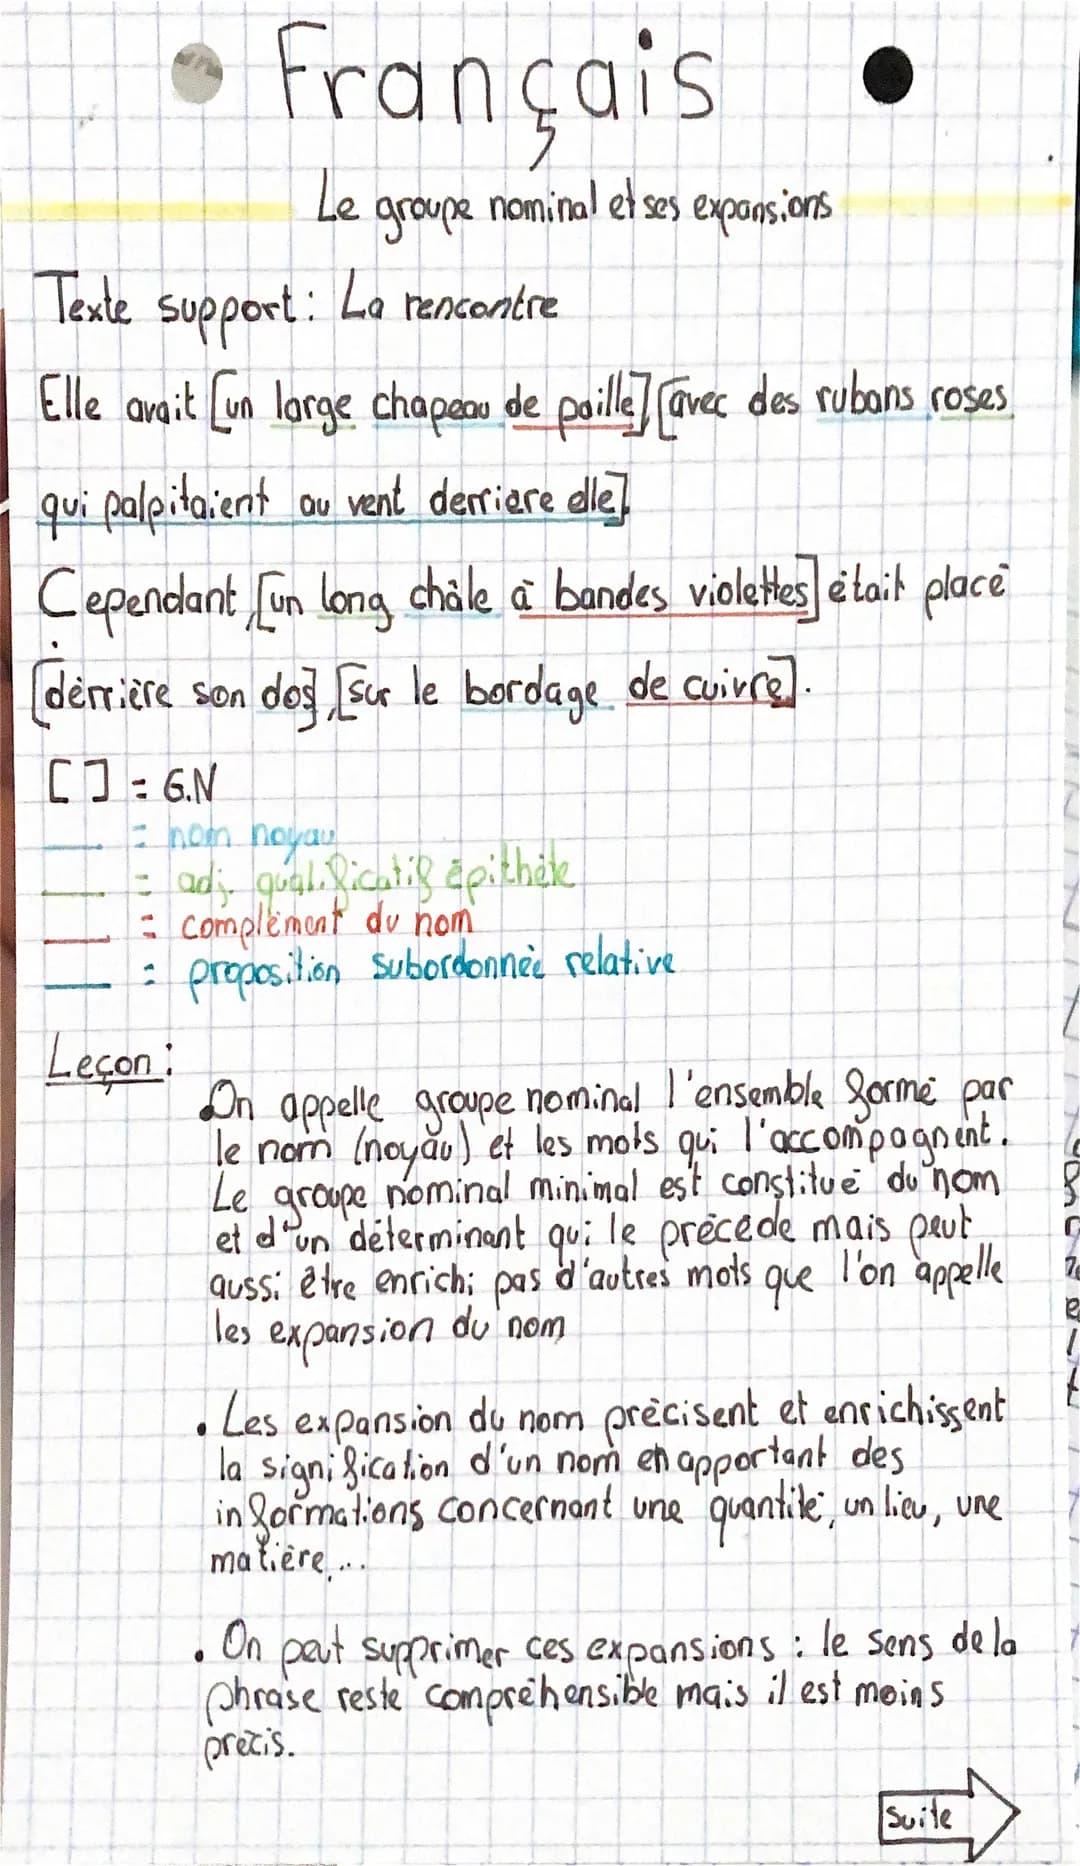 Français
Le groupe nominal et ses expansions
Texte support : La rencontre
Elle avait [un large chapeau de paille] [avec des rubans roses
qui palpitaient au vent derriere elle].
Cependant, [un long châle à bandes violettes] était placé
[derrière son dos], [sur le bordage de cuivre].
[ ] = G.N
= nom noyau
= adj. qualificatif épithète
= complément du nom
= proposition subordonnée relative
Leçon :
• On appelle groupe nominal l'ensemble formé par
le nom (noyau) et les mots qui l'accompagnent.
Le groupe nominal minimal est constitué du nom
et d'un déterminant qui le précède mais peut
aussi être enrichi pas d'autres mots que l'on appelle
les expansion du nom
• Les expansion du nom précisent et enrichissent
la signification d'un nom en apportant des
informations concernant une quantité, un lieu, une
matière,...
• On peut supprimer ces expansions : le sens de la
phrase reste compréhensible mais il est moins
précis.
Suite